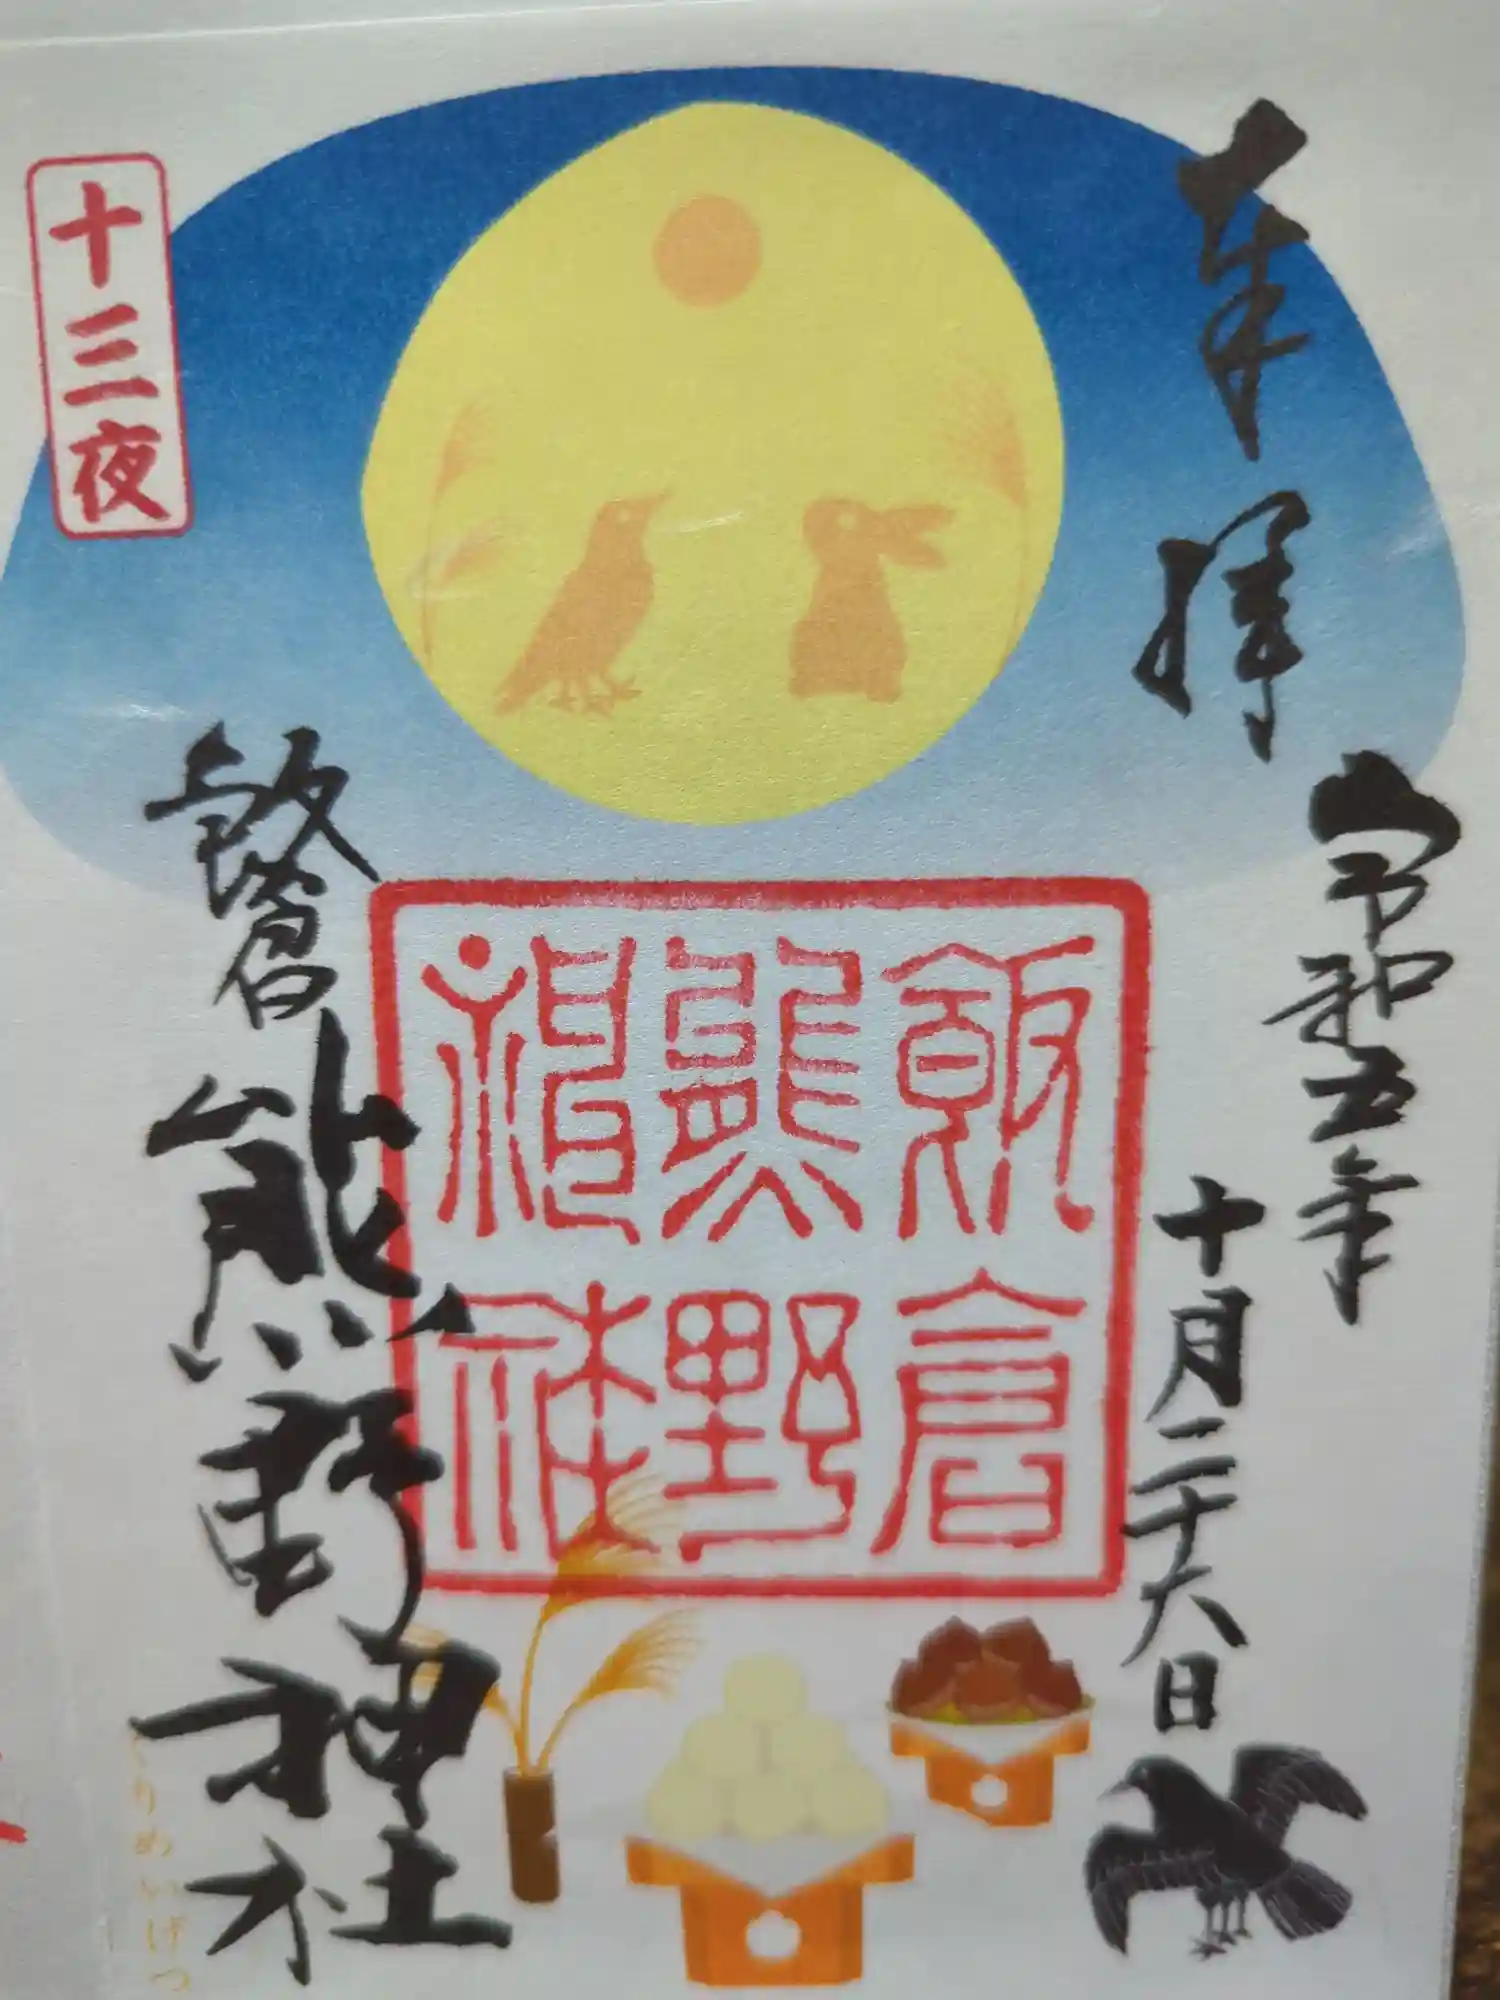 奉拝
令和五年
十月二十六日
飯倉
熊野
神社
飯倉熊野神社
十三夜
くりめいげつ